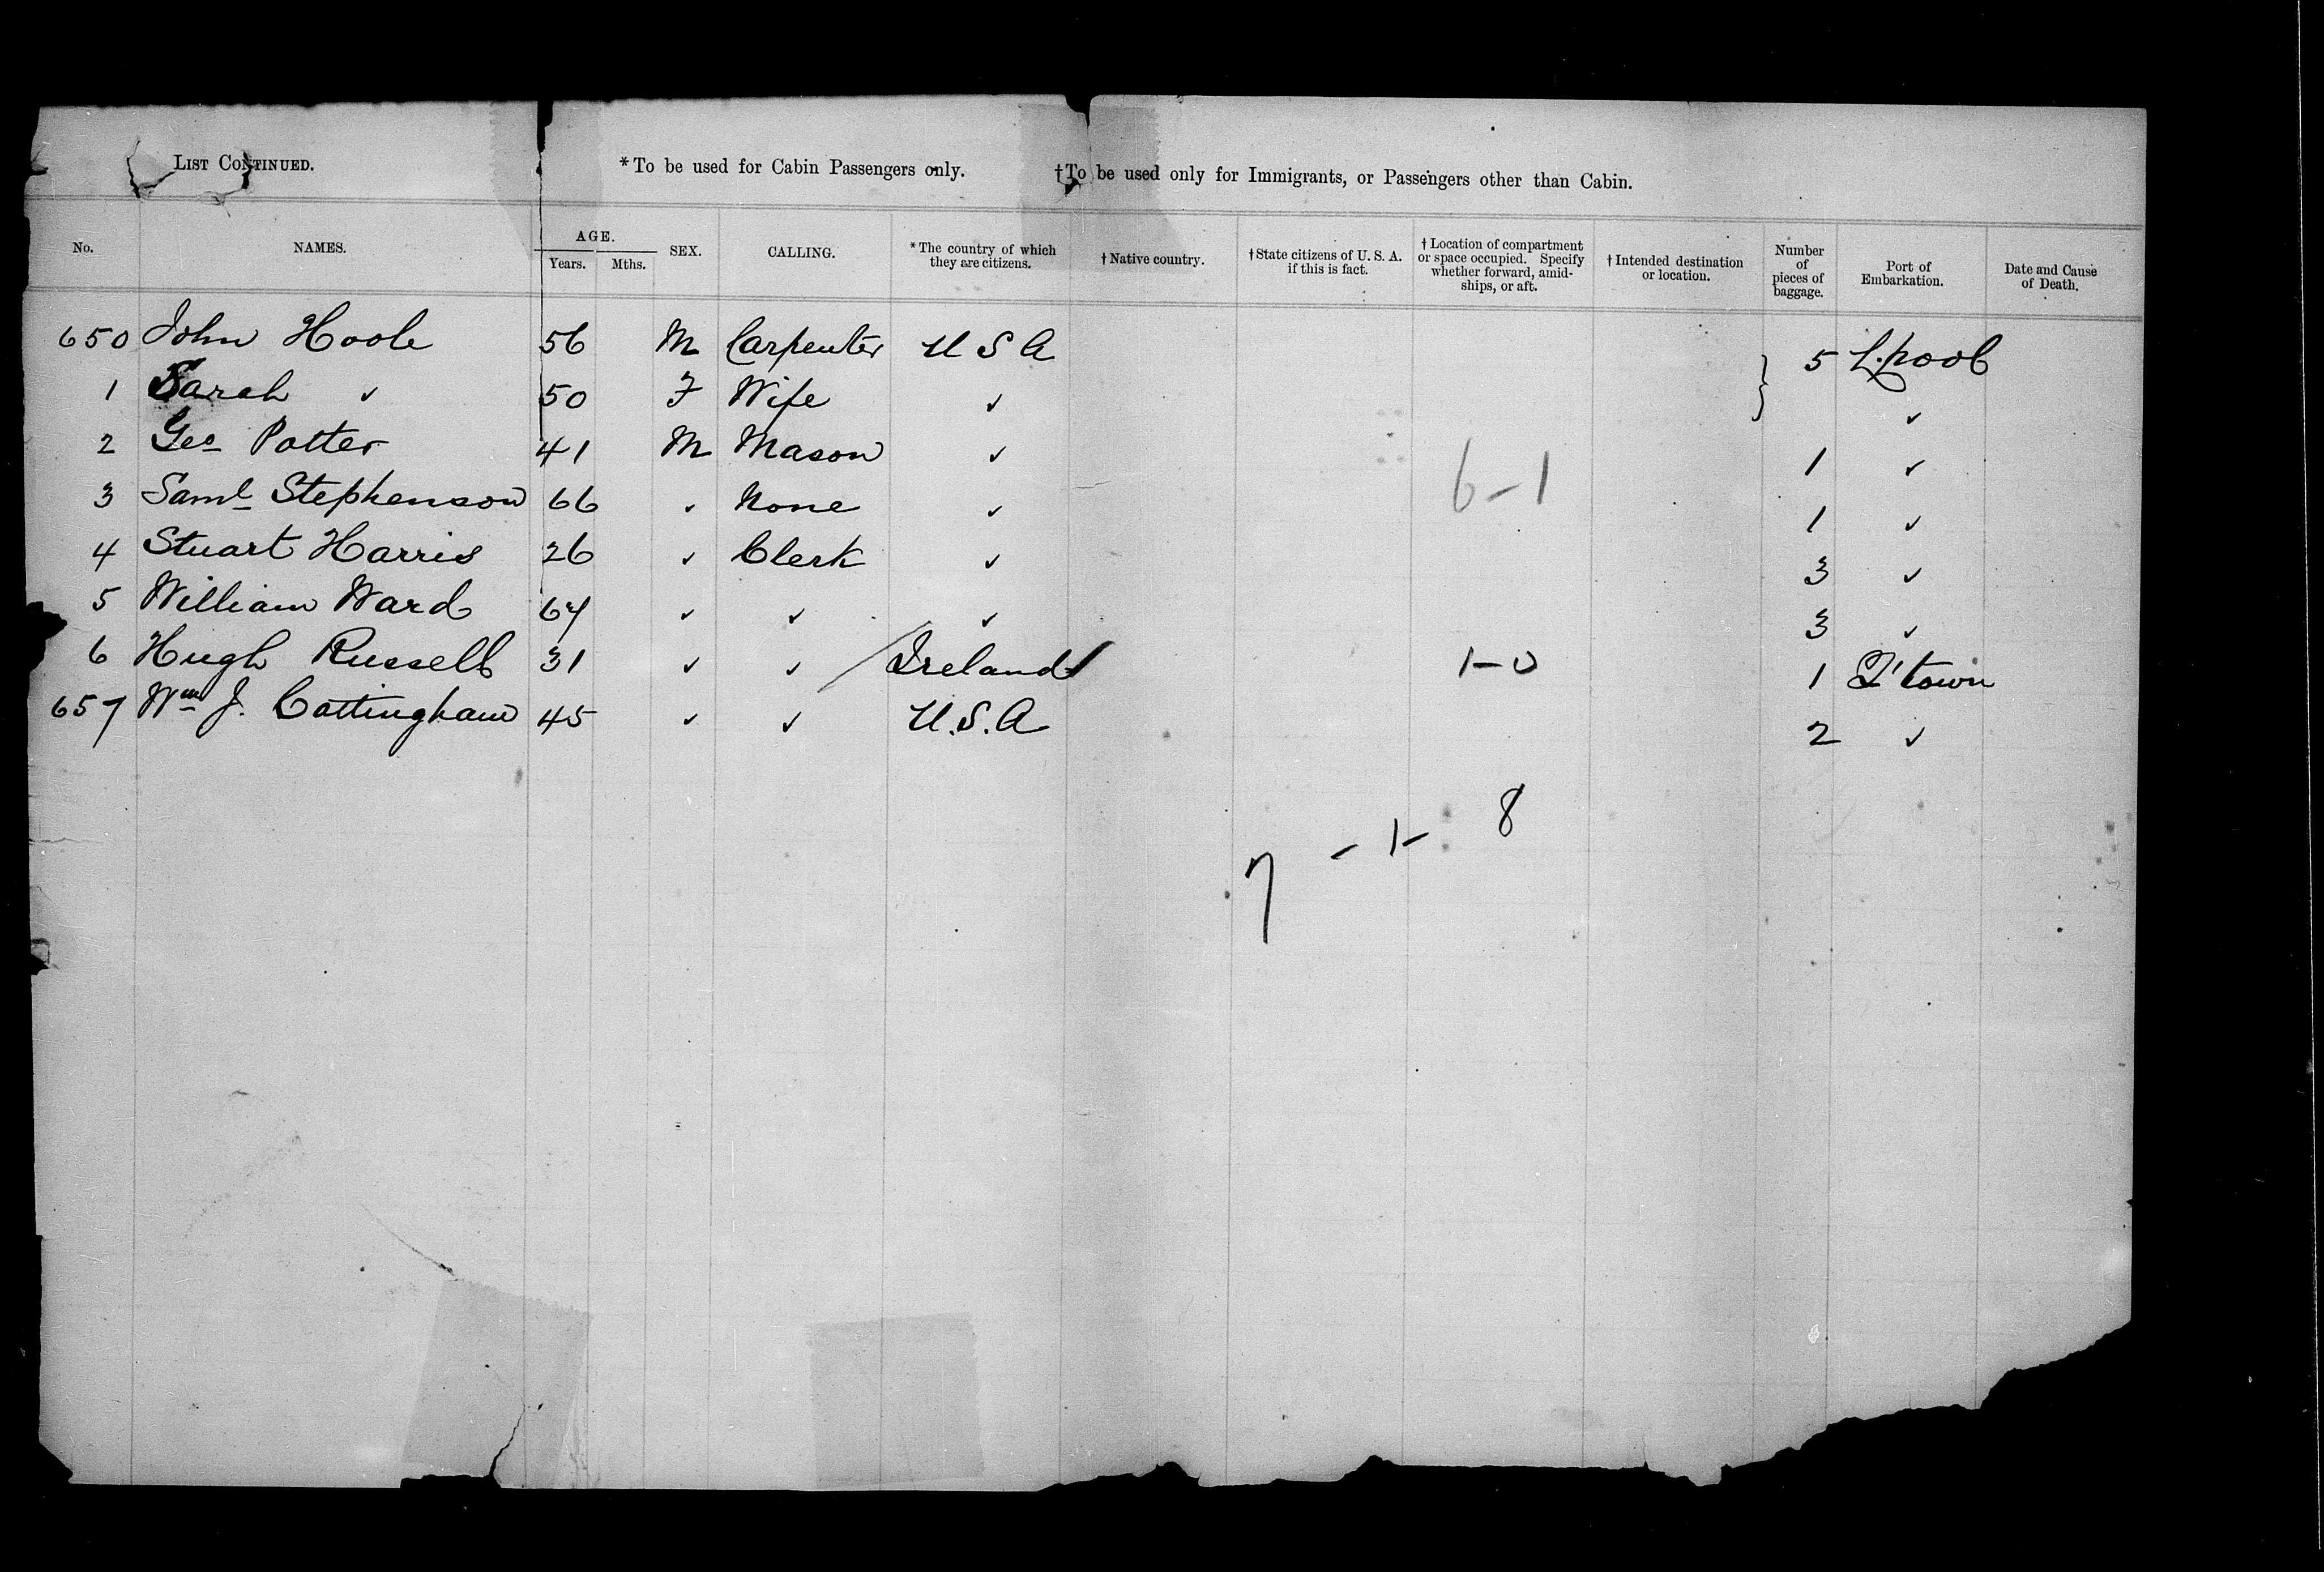 LIST CONTINUED. *To be used for Cabin Passengers only. †To be used only for Immigrants, or Passengers other than Cabin.
No. NAMES. AGE. Years. Mths. SEX. CALLING. *The country of which they are citizens. †Native country. †State citizens of U. S. A. if this is fact. †Location of compartment or space occupied. Specify whether forward, amid-ships, or aft. †Intended destination or location. Number of pieces of baggage. Port of Embarkation. Date and Cause of Death.
650 John Hoole 56 M Carpenter U S A 5 L.pool
1 Sarah ✓ 50 F Wife ✓ ✓
2 Geo Potter 41 M Mason ✓ 1 ✓
3 Saml Stephenson 66 ✓ None ✓ 6-1 1 ✓
4 Stuart Harris 26 ✓ Clerk ✓ 3 ✓
5 William Ward ✓ ✓ ✓ 3 ✓
6 Hugh Russell 31 ✓ ✓ Ireland 1-0 1 Q'town
657 Wm J. Cottingham 45 ✓ ✓ U.S.A 2 ✓
7 - 1- 8